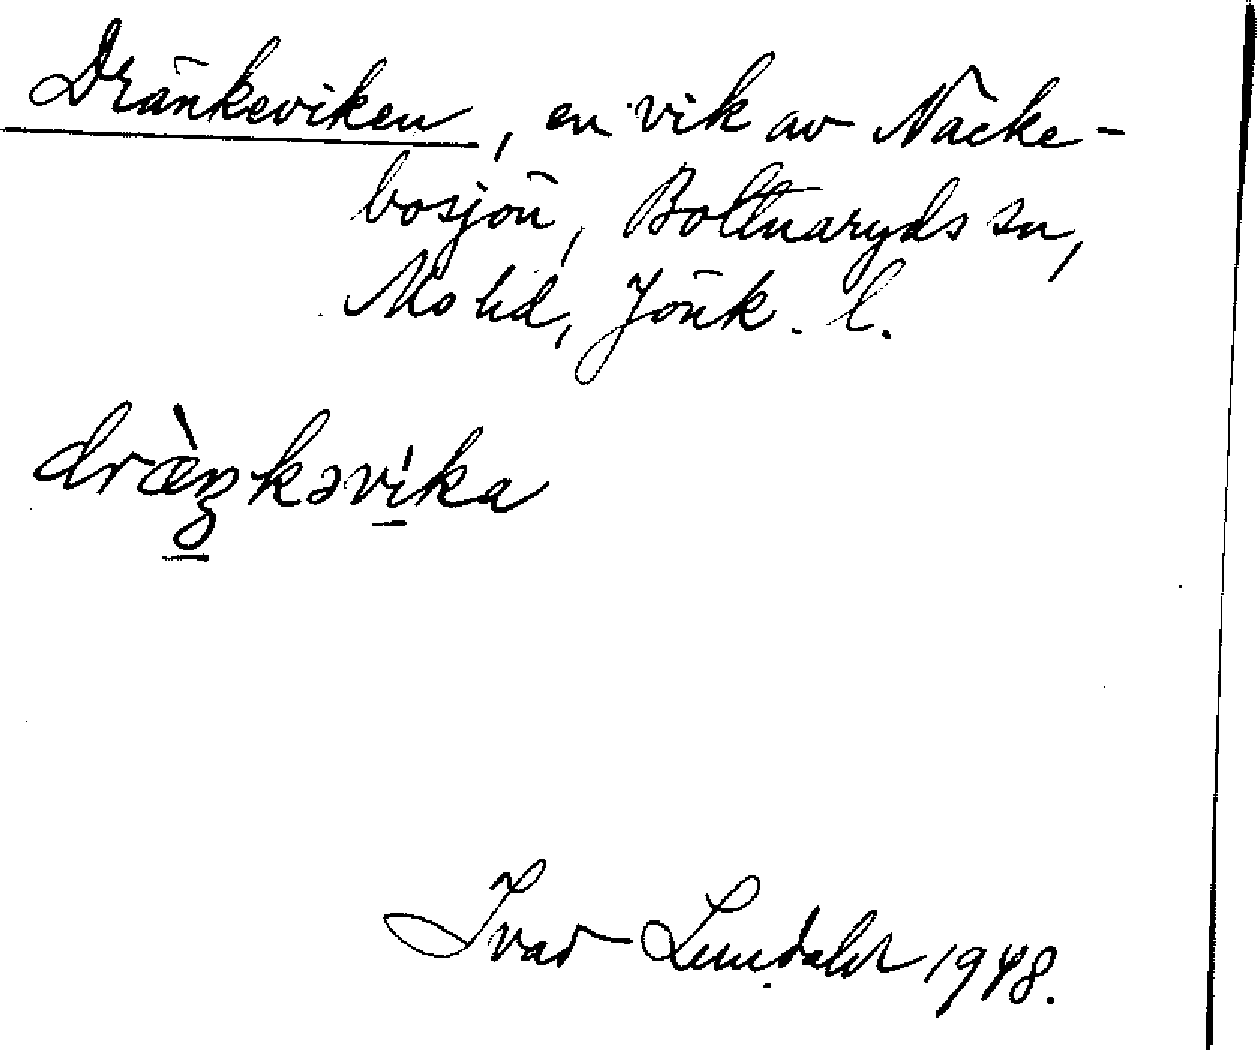 Dränkeviken, en vik av Nacke-
bosjön, Bottnaryds sn,
Mo hd, Jönk. l.
dræ̀ŋkəvi̍ka
Ivar Lundahl 1948.